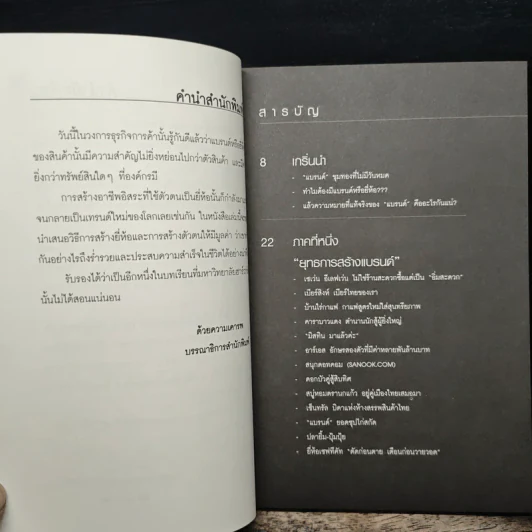 คำนำสำนักพิมพ์
วันนี้ในวงการธุรกิจการค้านั้นรู้กันดีแล้วว่าแบรนด์หรือยี่ห้อ
ของสินค้านั้นมีความสำคัญไม่ยิ่งหย่อนไปกว่าตัวสินค้า และมี
ยิ่งกว่าทรัพย์สินใดๆ ที่องค์กรมี
การสร้างอาชีพอิสระที่ใช้ตัวตนเป็นยี่ห้อนั้นก็กำลัง
จนกลายเป็นเทรนด์ใหม่ของโลกเลยเช่นกัน ในหนังสือเล่มนี้
นำเสนอวิธีการสร้างยี่ห้อและการสร้างตัวตนให้มีมูลค่า ว่า
กันอย่างไรถึงร่ำรวยและประสบความสำเร็จในชีวิตได้อย่าง
รับรองได้ว่าเป็นอีกหนึ่งในบทเรียนที่มหาวิทยาลัย
นั้นไม่ได้สอนแน่นอน
ด้วยความเคารพ
บรรณาธิการสำนักพิมพ์
สารบัญ
8 เกริ่นนำ
- "แบรนด์" ขุมทองที่ไม่มีวันหมด
- ทำไมต้องมีแบรนด์หรือยี่ห้อ???
- แล้วความหมายที่แท้จริงของ "แบรนด์" คืออะไรกันแน่?
22 ภาคที่หนึ่ง
"ยุทธการสร้างแบรนด์"
- เซเว่น อีเลฟเว่น ไม่ใช่ร้านสะดวกซื้อแต่เป็น "อิ่มสะดวก"
- เบียร์สิงห์ เบียร์ไทยของเรา
- บ้านไร่กาแฟ กาแฟสูตรใหม่ใส่สุนทรียภาพ
- คาราบาวแดง ตำนานนักสู้ผู้ยิ่งใหญ่
- "มิสทิน มาแล้วค่ะ"
- อาร์เอส อักษรสองตัวที่มีค่าหลายพันล้านบาท
- สนุกดอทคอม (SANOOK.COM)
- ดอกบัวคู่สู้สิบทิศ
- สบู่หอมตรานกแก้ว อยู่คู่เมืองไทยเสมอมา
- เซ็นทรัล บิดาแห่งห้างสรรพสินค้าไทย
- "แบรนด์" ยอดซุปไก่สกัด
- ปลายิ้ม-ปุ้มปุ้ย
- ยี่ห้อเชฟทีคัท "ตัดก่อนตาย เตือนก่อนวายวอด"